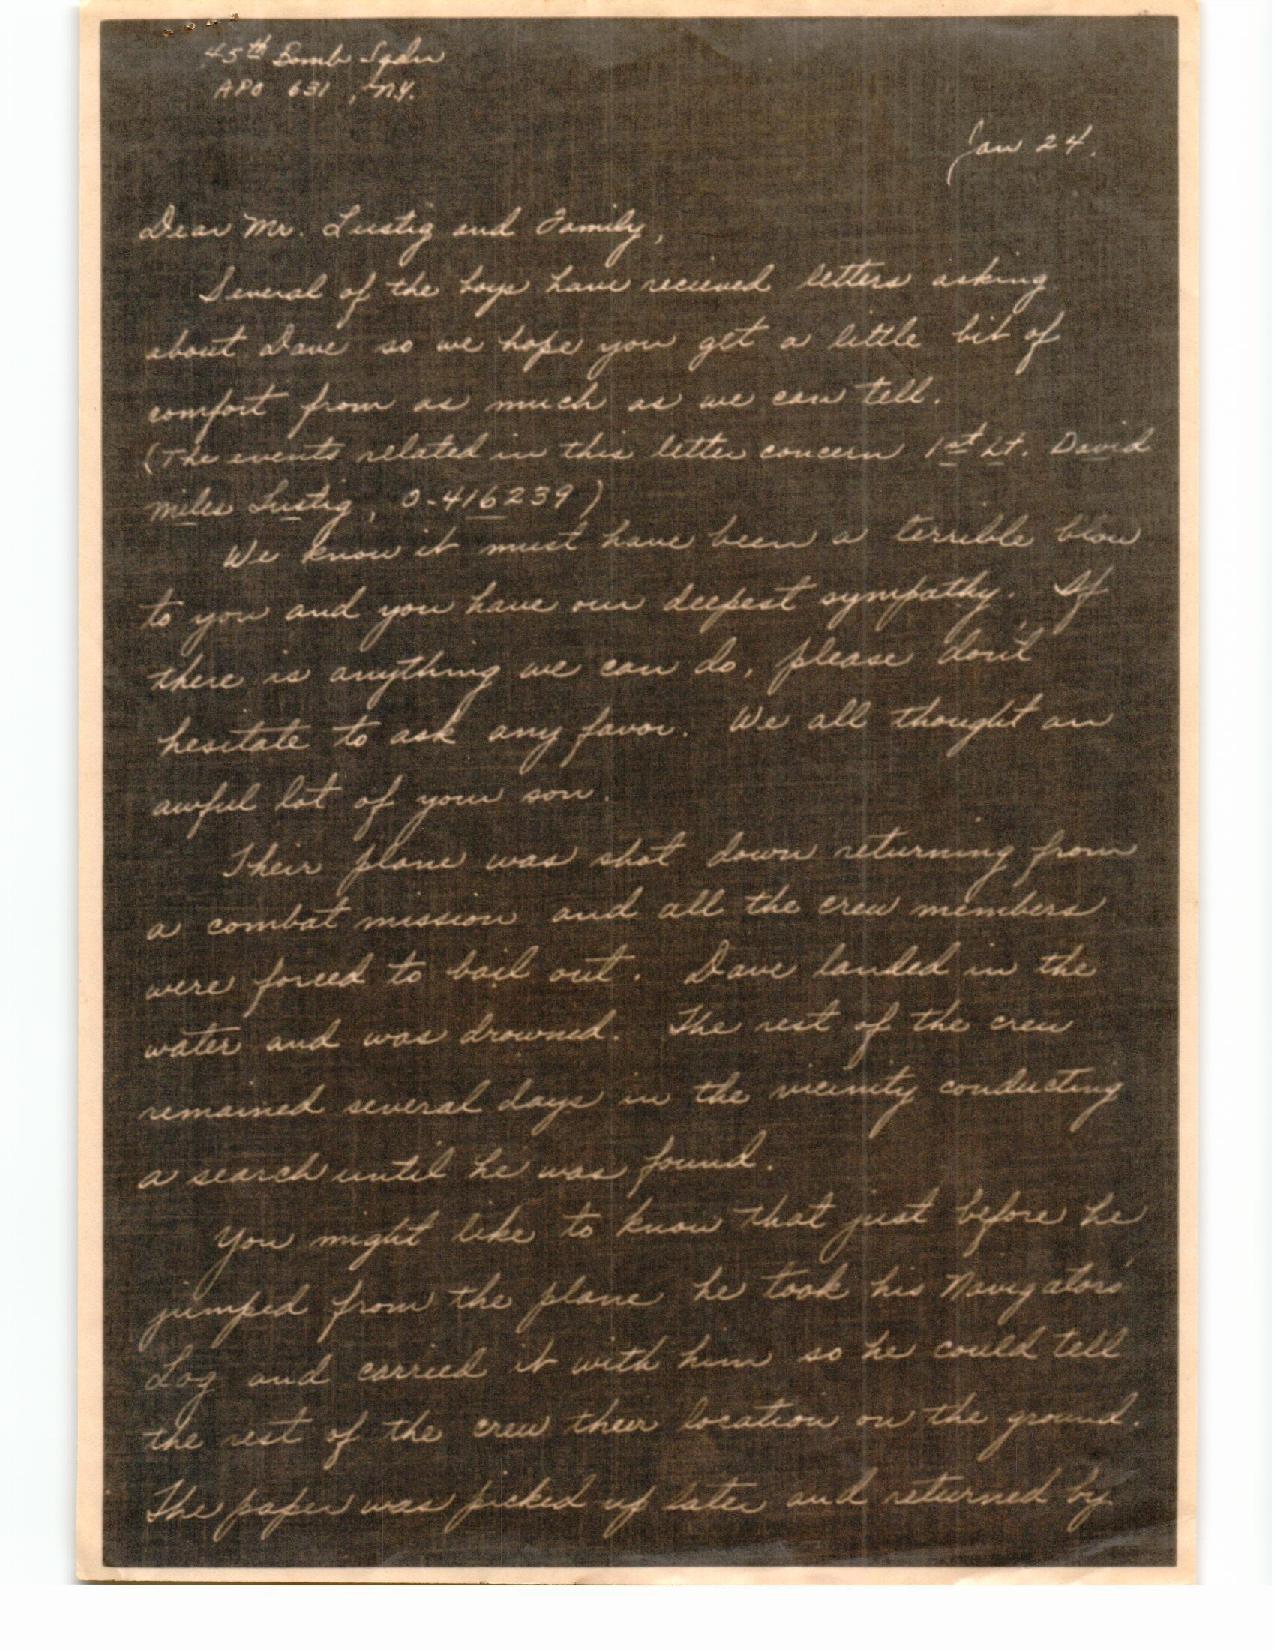 45th Bomb Sqdn
APO 631, N.Y.
Jan 24.
Dear Mr. Lustig and Family,
Several of the boys have recieved letters asking
about Dave so we hope you get a little bit of
comfort from as much as we can tell.
(The events related in this letter concern 1st Lt. David
Miles Lustig, O-416239)
We know it must have been a terrible blow
to you and you have our deepest sympathy. If
there is anything we can do, please don't
hesitate to ask any favor. We all thought an
awful lot of your son.
Their plane was shot down returning from
a combat mission and all the crew members
were forced to bail out. Dave landed in the
water and was drowned. The rest of the crew
remained several days in the vicinity conducting
a search until he was found.
You might like to know that just before he
jumped from the plane he took his Navigators
Log and carried it with him so he could tell
the rest of the crew their location on the ground.
The paper was picked up later and returned by